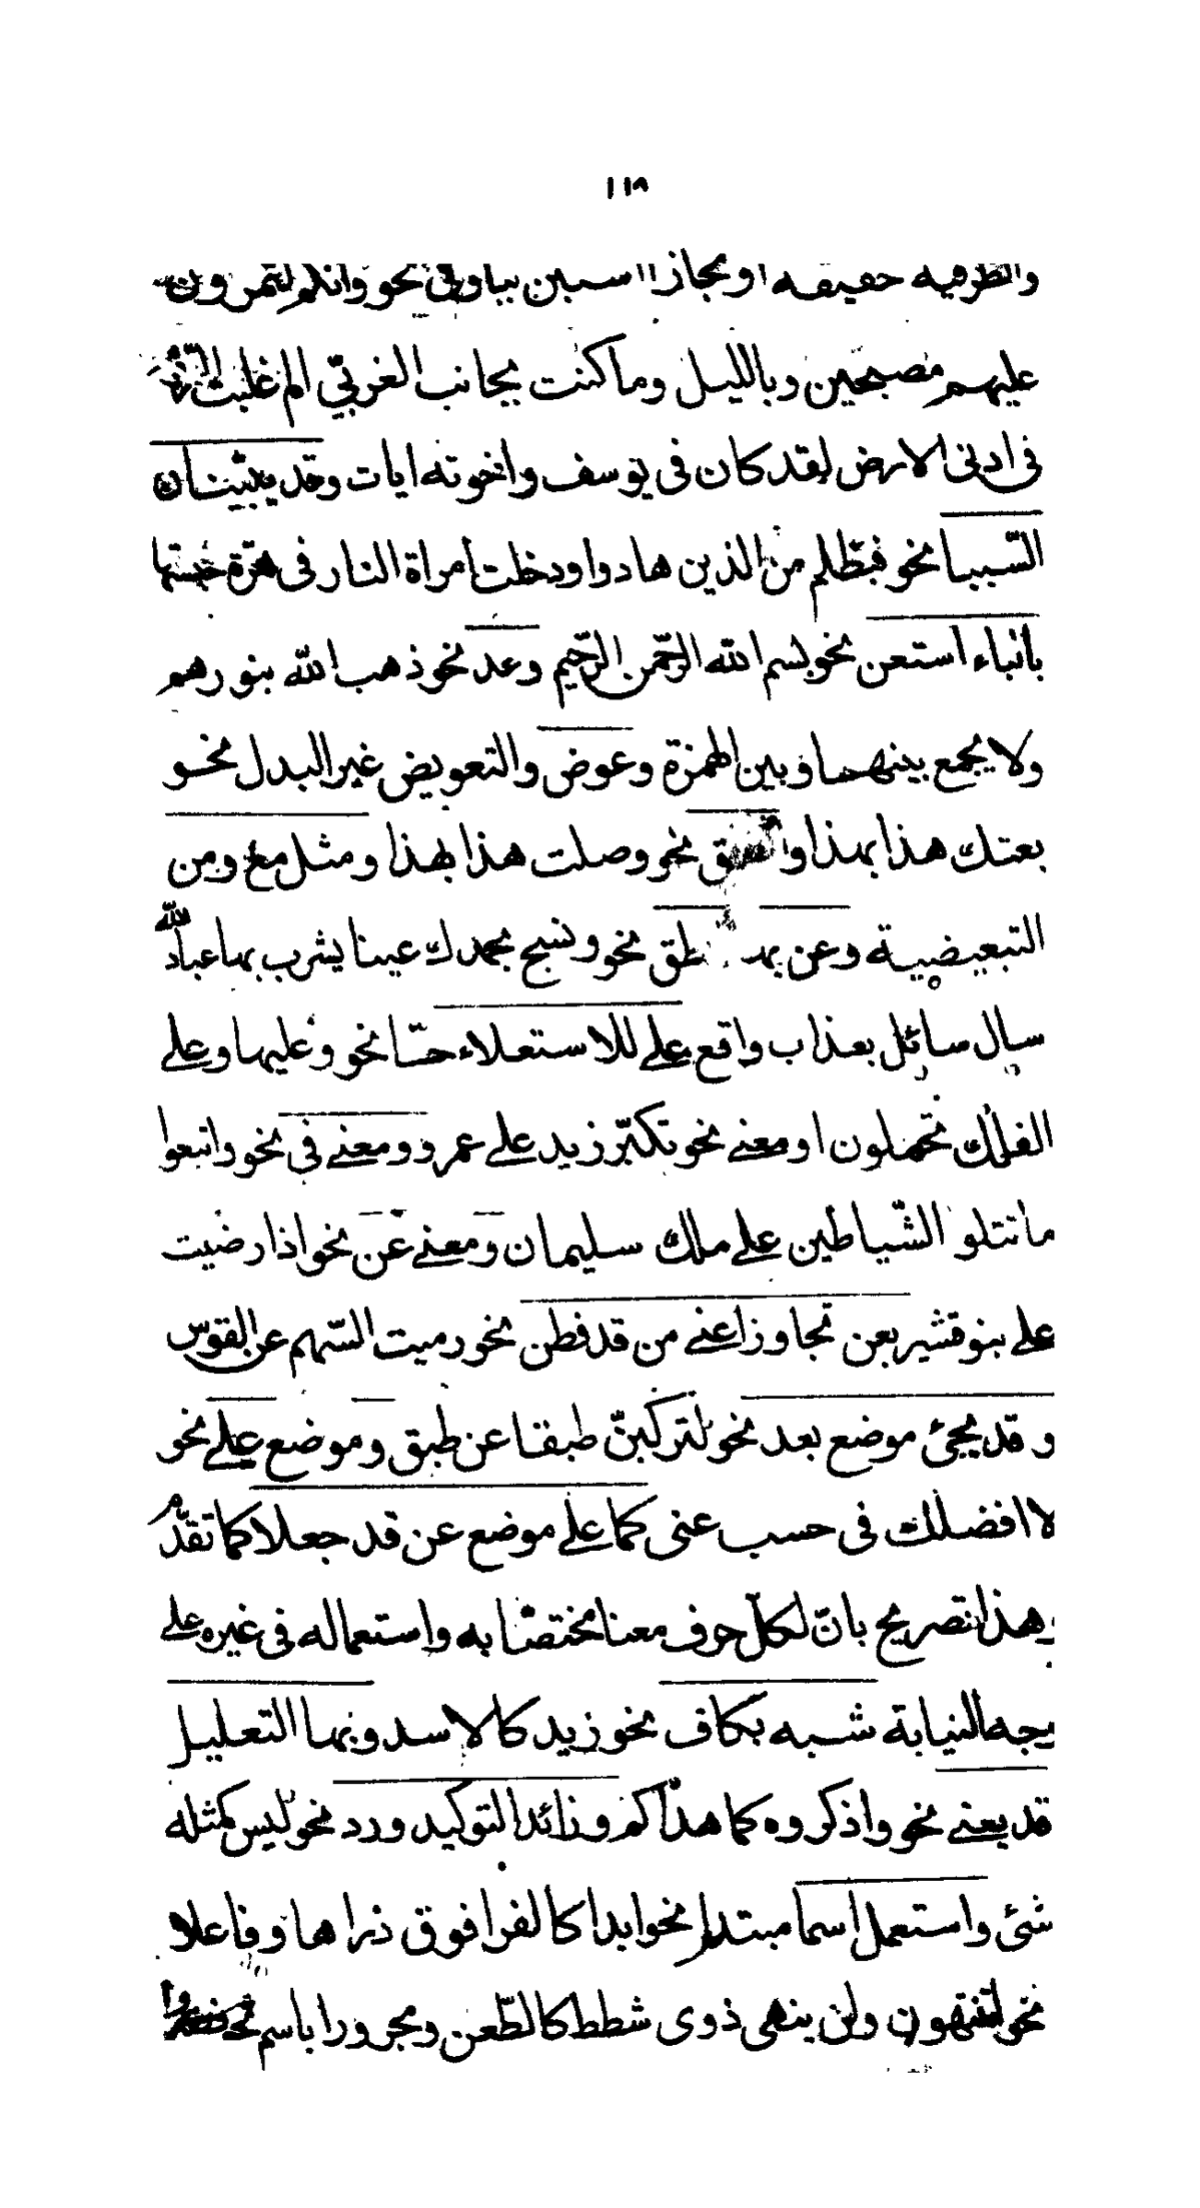 ١١٨
والظرفية حقيقة او مجازا استبن ببا وفى نحو وانكم لتمرون
عليهم مصبحين وبالليل وما كنت بجانب الغربي الم غلبت الرّوم
فى ادنى الارض لقد كان فى يوسف واخوته ايات وقد يبيّنان
السّببا نحو فبظلم من الذين هادوا ودخلت امراة النار فى هرّة حبستها
بالباء استعن نحو بسم الله الرّحمن الرّحيم وعد نحو ذهب الله بنورهم
ولا يجمع بينهما وبين الهمزة وعوض والتعويض غير البدل نحو
بعتك هذا بهذا والصق نحو وصلت هذا بهذا ومثل مع ومن
التبعيضية وعن بها انطق نحو ونسبح بحمدك عينا يشرب بها عباد الله
سال سائل بعذاب واقع على للاستعلاء حسّا نحو وعليها وعلى
الفلك تحملون او معنے نحو تكبّر زيد على عمرو ومعنے فى نحو واتبعوا
ما تتلو الشّياطين على ملك سليمان ومعنے عن نحو اذا رضيت
على بنو قشير بعن تجاوزا عنے من قد فطن نحو رميت السّهم عن القوس
وقد يجئ موضع بعد نحو لتركبنّ طبقا عن طبق وموضع على نحو
لا افضلك فى حسب عنى كما على موضع عن قد جعلا كما تقدّم
وهذا تصريح بانّ لكلّ حرف معنا مختصّا به واستعماله فى غيره على
جهة النيابة شبه بكاف نحو زيد كالاسد وبها التعليل
قد يعنے نحو واذكروه كما هداكم وزائدا لتوكيد ورد نحو ليس كمثله
شئ واستعمل اسما مبتدا نحو ابدا كالفرا فوق ذراها وفاعلا
نحو اتنتهون ولن ينهى ذوى شطط كالطّعن ومجرورا باسم نحو